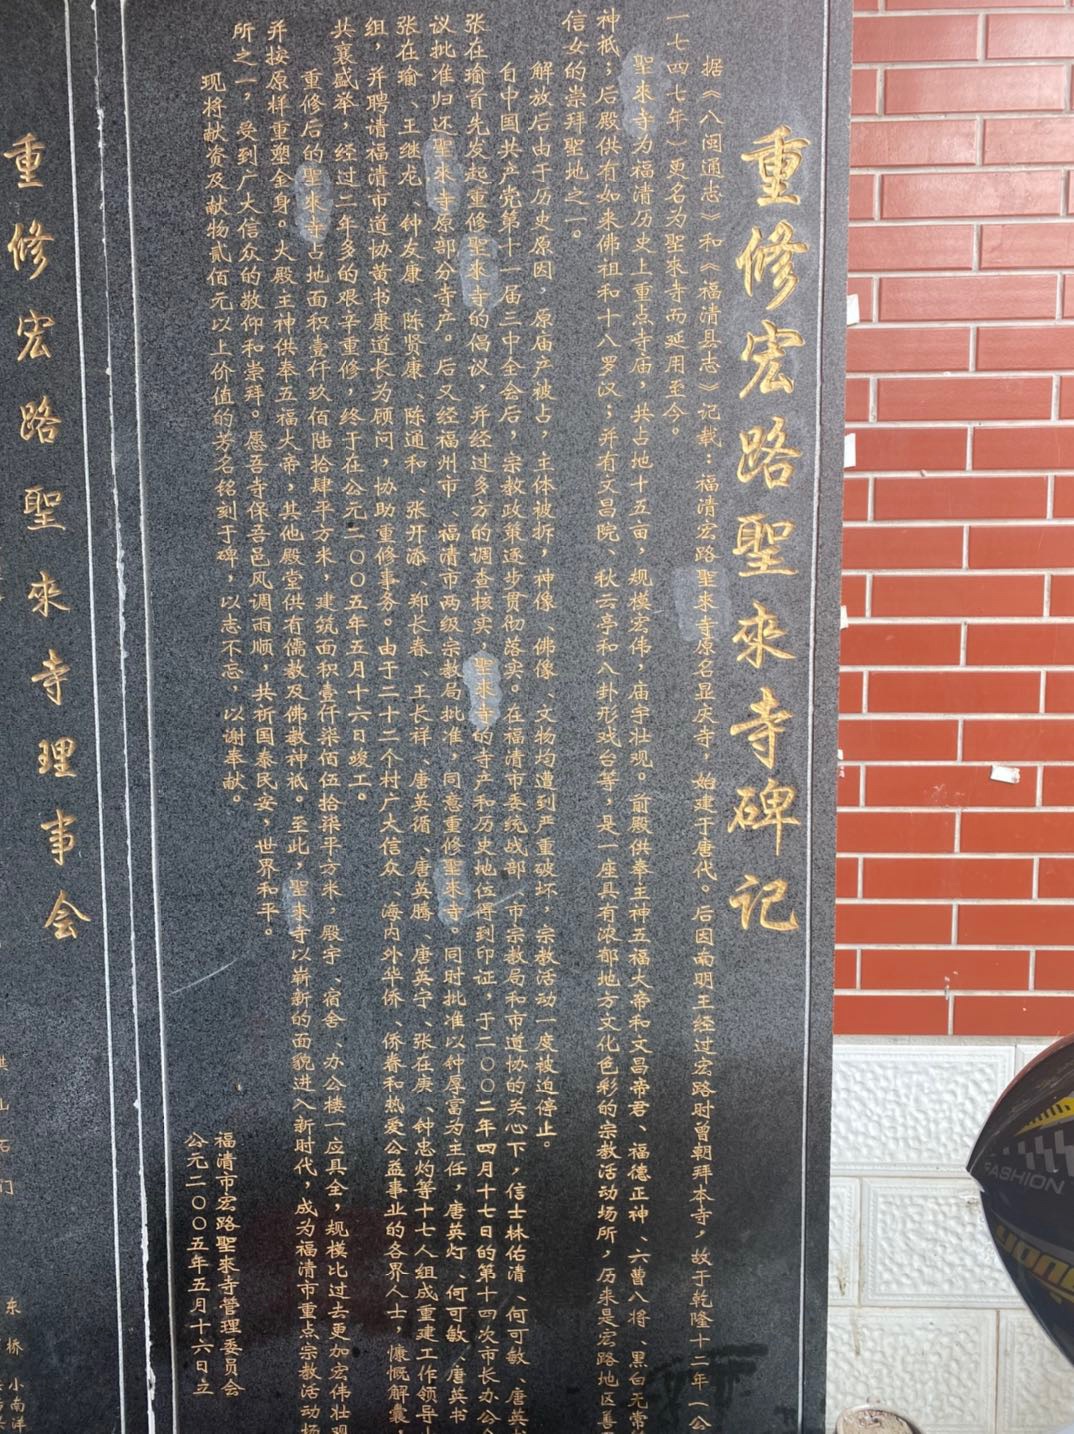 重修宏路聖來寺碑记
据《八闽通志》和《福清县志》记载：福清宏路聖來寺原名显庆寺，始建于唐代。后因南明王经过宏路时曾朝拜本寺，故于乾隆十二年（公
一七四七年）更名为聖來寺而延用至今。
聖來寺为福清历史上重点寺庙，共占地十五亩，规模宏伟，庙宇壮观。前殿供奉主神五福大帝和文昌帝君、福德正神、六曹八将、黑白无常
神祇；后殿供有如来佛祖和十八罗汉；并有文昌院、秋云亭和八卦形戏台等，是一座具有浓郁地方文化色彩的宗教活动场所，历来是宏路地区善
信女的崇拜聖地之一。
解放后由于历史原因，原庙产被占，主体被拆，神像、佛像、文物均遭到严重破坏，宗教活动一度被迫停止。
自中国共产党第十一届三中全会后，宗教政策逐步贯彻落实。在福清市委统战部、市宗教局和市道协的关心下，信士林佑清、何可敏、唐英
张在瑜首先发起重修聖來寺的倡议，并经过多方的调查核实，聖來寺的寺产和历史地位得到印证，于二00二年四月十七日的第十四次市长办公会
议批准归还聖來寺原部分寺产。后又经福州市、福清市两级宗教局批准，同意重修聖來寺。同时批准以钟厚富为主任，唐英灯、何可敏、唐英书
张在瑜、王继龙、钟友康、陈贤康、陈通和、张开添、郑长春、王长祥、唐英循、唐英腾、唐英宁、张在庚、钟忠灼等十七人组成重建工作领导
组，并聘请福清市道协黄书康道长为顾问，协助重修事务。由于二十二个村广大信众、海内外华侨、侨眷和热爱公益事业的各界人士，慷慨解囊，
共襄盛举，经过二年多的艰辛重修，终于在公元二00五年五月十六日竣工。
重修后的聖來寺占地面积壹仟玖佰陆拾肆平方米，建筑面积壹仟柒佰伍拾柒平方米，殿宇、宿舍、办公楼一应具全，规模比过去更加宏伟壮观
并按原样重塑金身。大殿主神供奉五福大帝，其他殿堂供有儒教及佛教神祇。至此，聖來寺以崭新的面貌进入新时代，成为福清市重点宗教活动场
所之一，受到广大信众的敬仰和崇拜。愿吾寺保吾邑风调雨顺，共祈国泰民安，世界和平。
现将献资及献物贰佰元以上价值的芳名铭刻于碑，以志不忘，以谢奉献。
福清市宏路聖來寺管理委员会
公元二00五年五月十六日立
重修宏路聖來寺理事会
东桥
小南洋
石门
FASHION